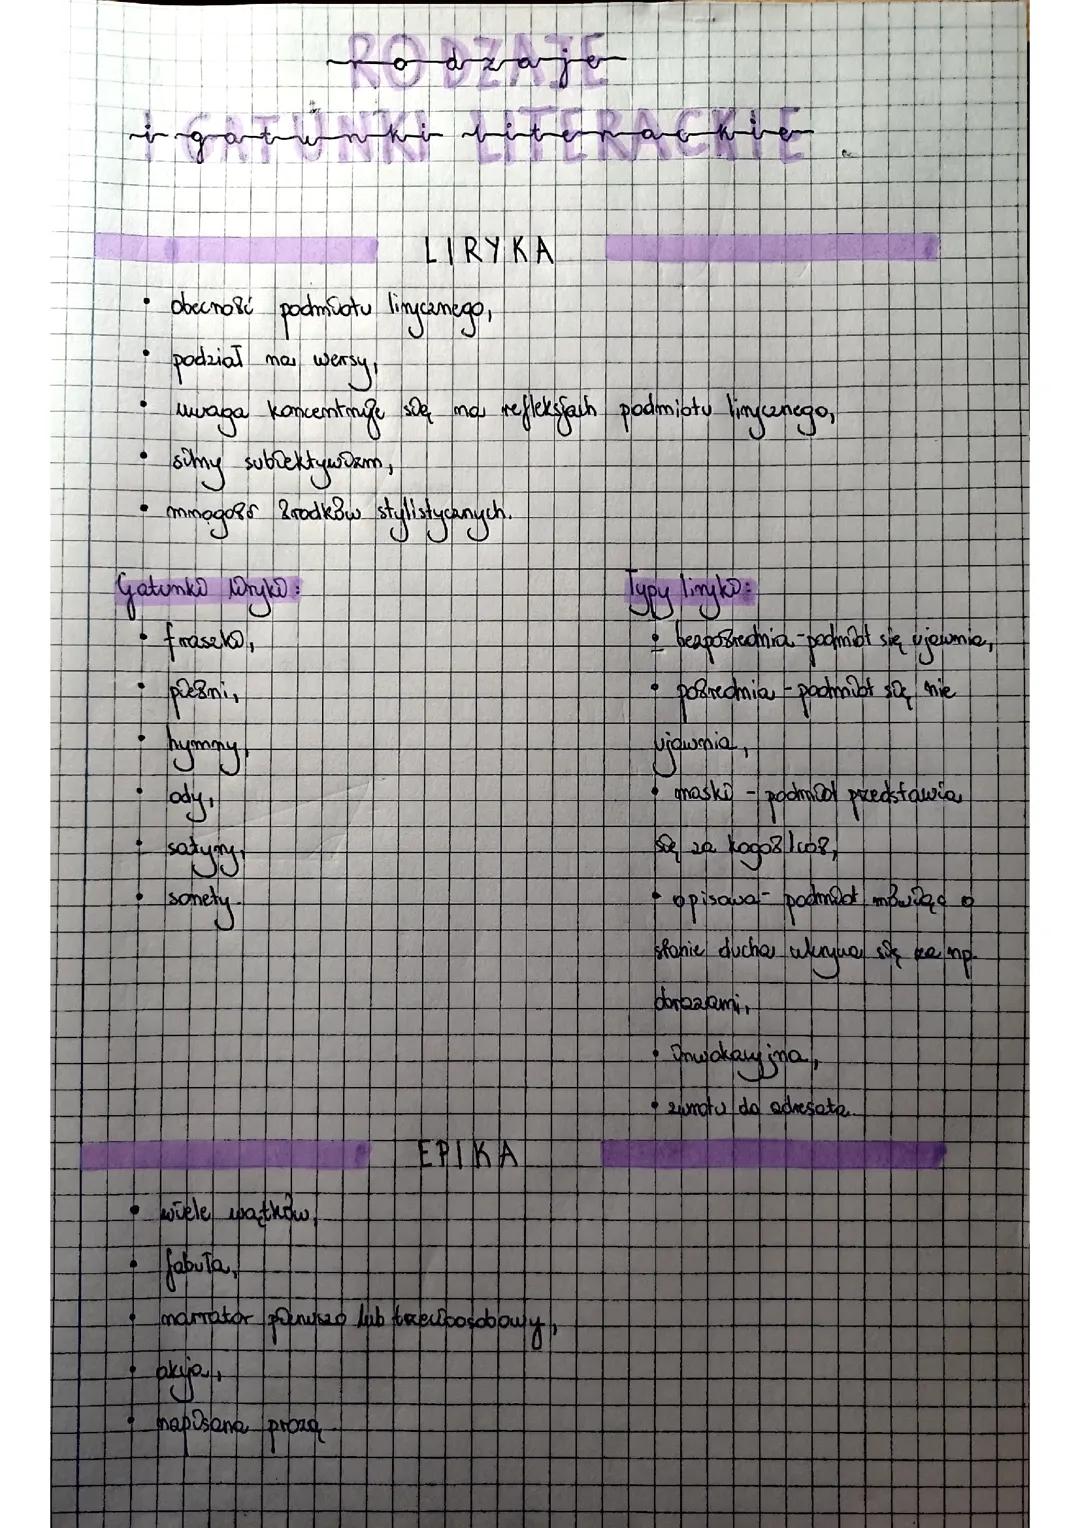 Rodzaje
i gatunki literackie
LIRYKA
• obecność podmiotu lirycznego,
• podział na wersy,
• uwaga koncentruje się na refleksjach podmiotu lirycznego,
• silny subiektywizm,
• mnogość środków stylistycznych.
Gatunki liryki:
• fraszki,
• pieśni,
• hymny,
• ody,
• satyry,
• sonety.
Typy liryki:
• bezpośrednia - podmiot się ujawnia,
• pośrednia - podmiot się nie
ujawnia,
• maski - podmiot przedstawia
się za kogoś/coś,
• opisowa - podmiot mówiąc o
stanie ducha ukrywa się za np.
obrazami,
• inwokacyjna,
• zwrotu do adresata.
EPIKA
• wiele wątków,
• fabuła,
• narrator pierwszo lub trzecioosobowy,
• akcja,
• napisana prozą.